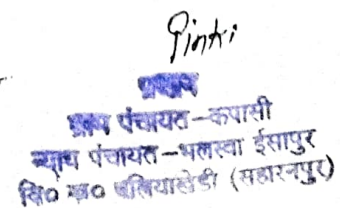 Pinki
प्रधान
ग्राम पंचायत-कपासी
न्याय पंचायत-भलस्वा ईसापुर
वि० ख० बलियाखेडी (सहारनपुर)